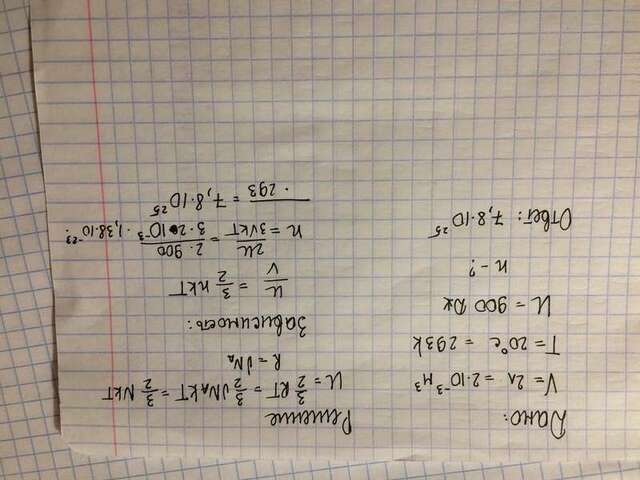 Дано:
V = 2л = 2·10⁻³ м³
T = 20°C = 293К
U = 900 Дж
n - ?
Решение
U = 3/2 RT = 3/2 √N_A kT = 3/2 NkT
R = √N_A
Зависимость:
U/V = 3/2 nkT
n = 2U/3VkT = 2·900/3·2·10⁻³·1,38·10⁻²³·
·293 = 7,8·10²⁵
Ответ: 7,8·10²⁵